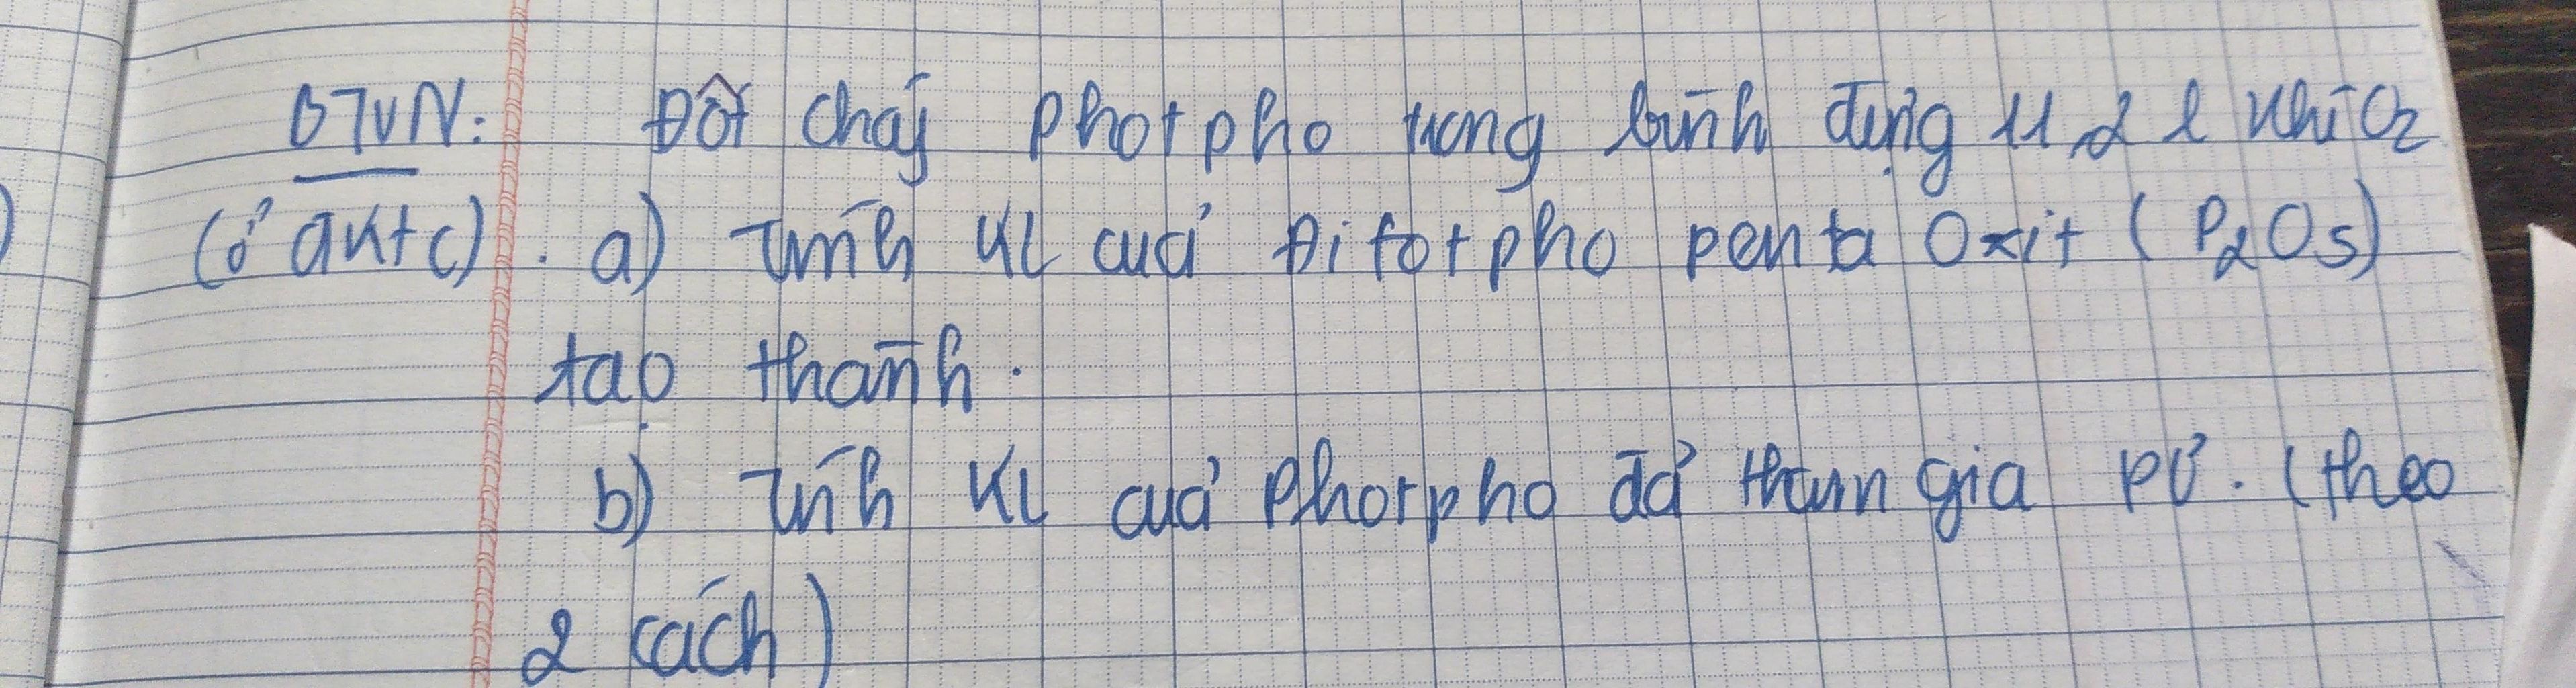 BTVN: Đốt cháy photpho trong bình đựng 11,2 l khí O2
(ở đktc). a) Tính KL của Đi fotpho penta Oxit (P2O5)
tạo thành.
b) Tính KL của Photpho đã tham gia PƯ. (theo
2 cách)